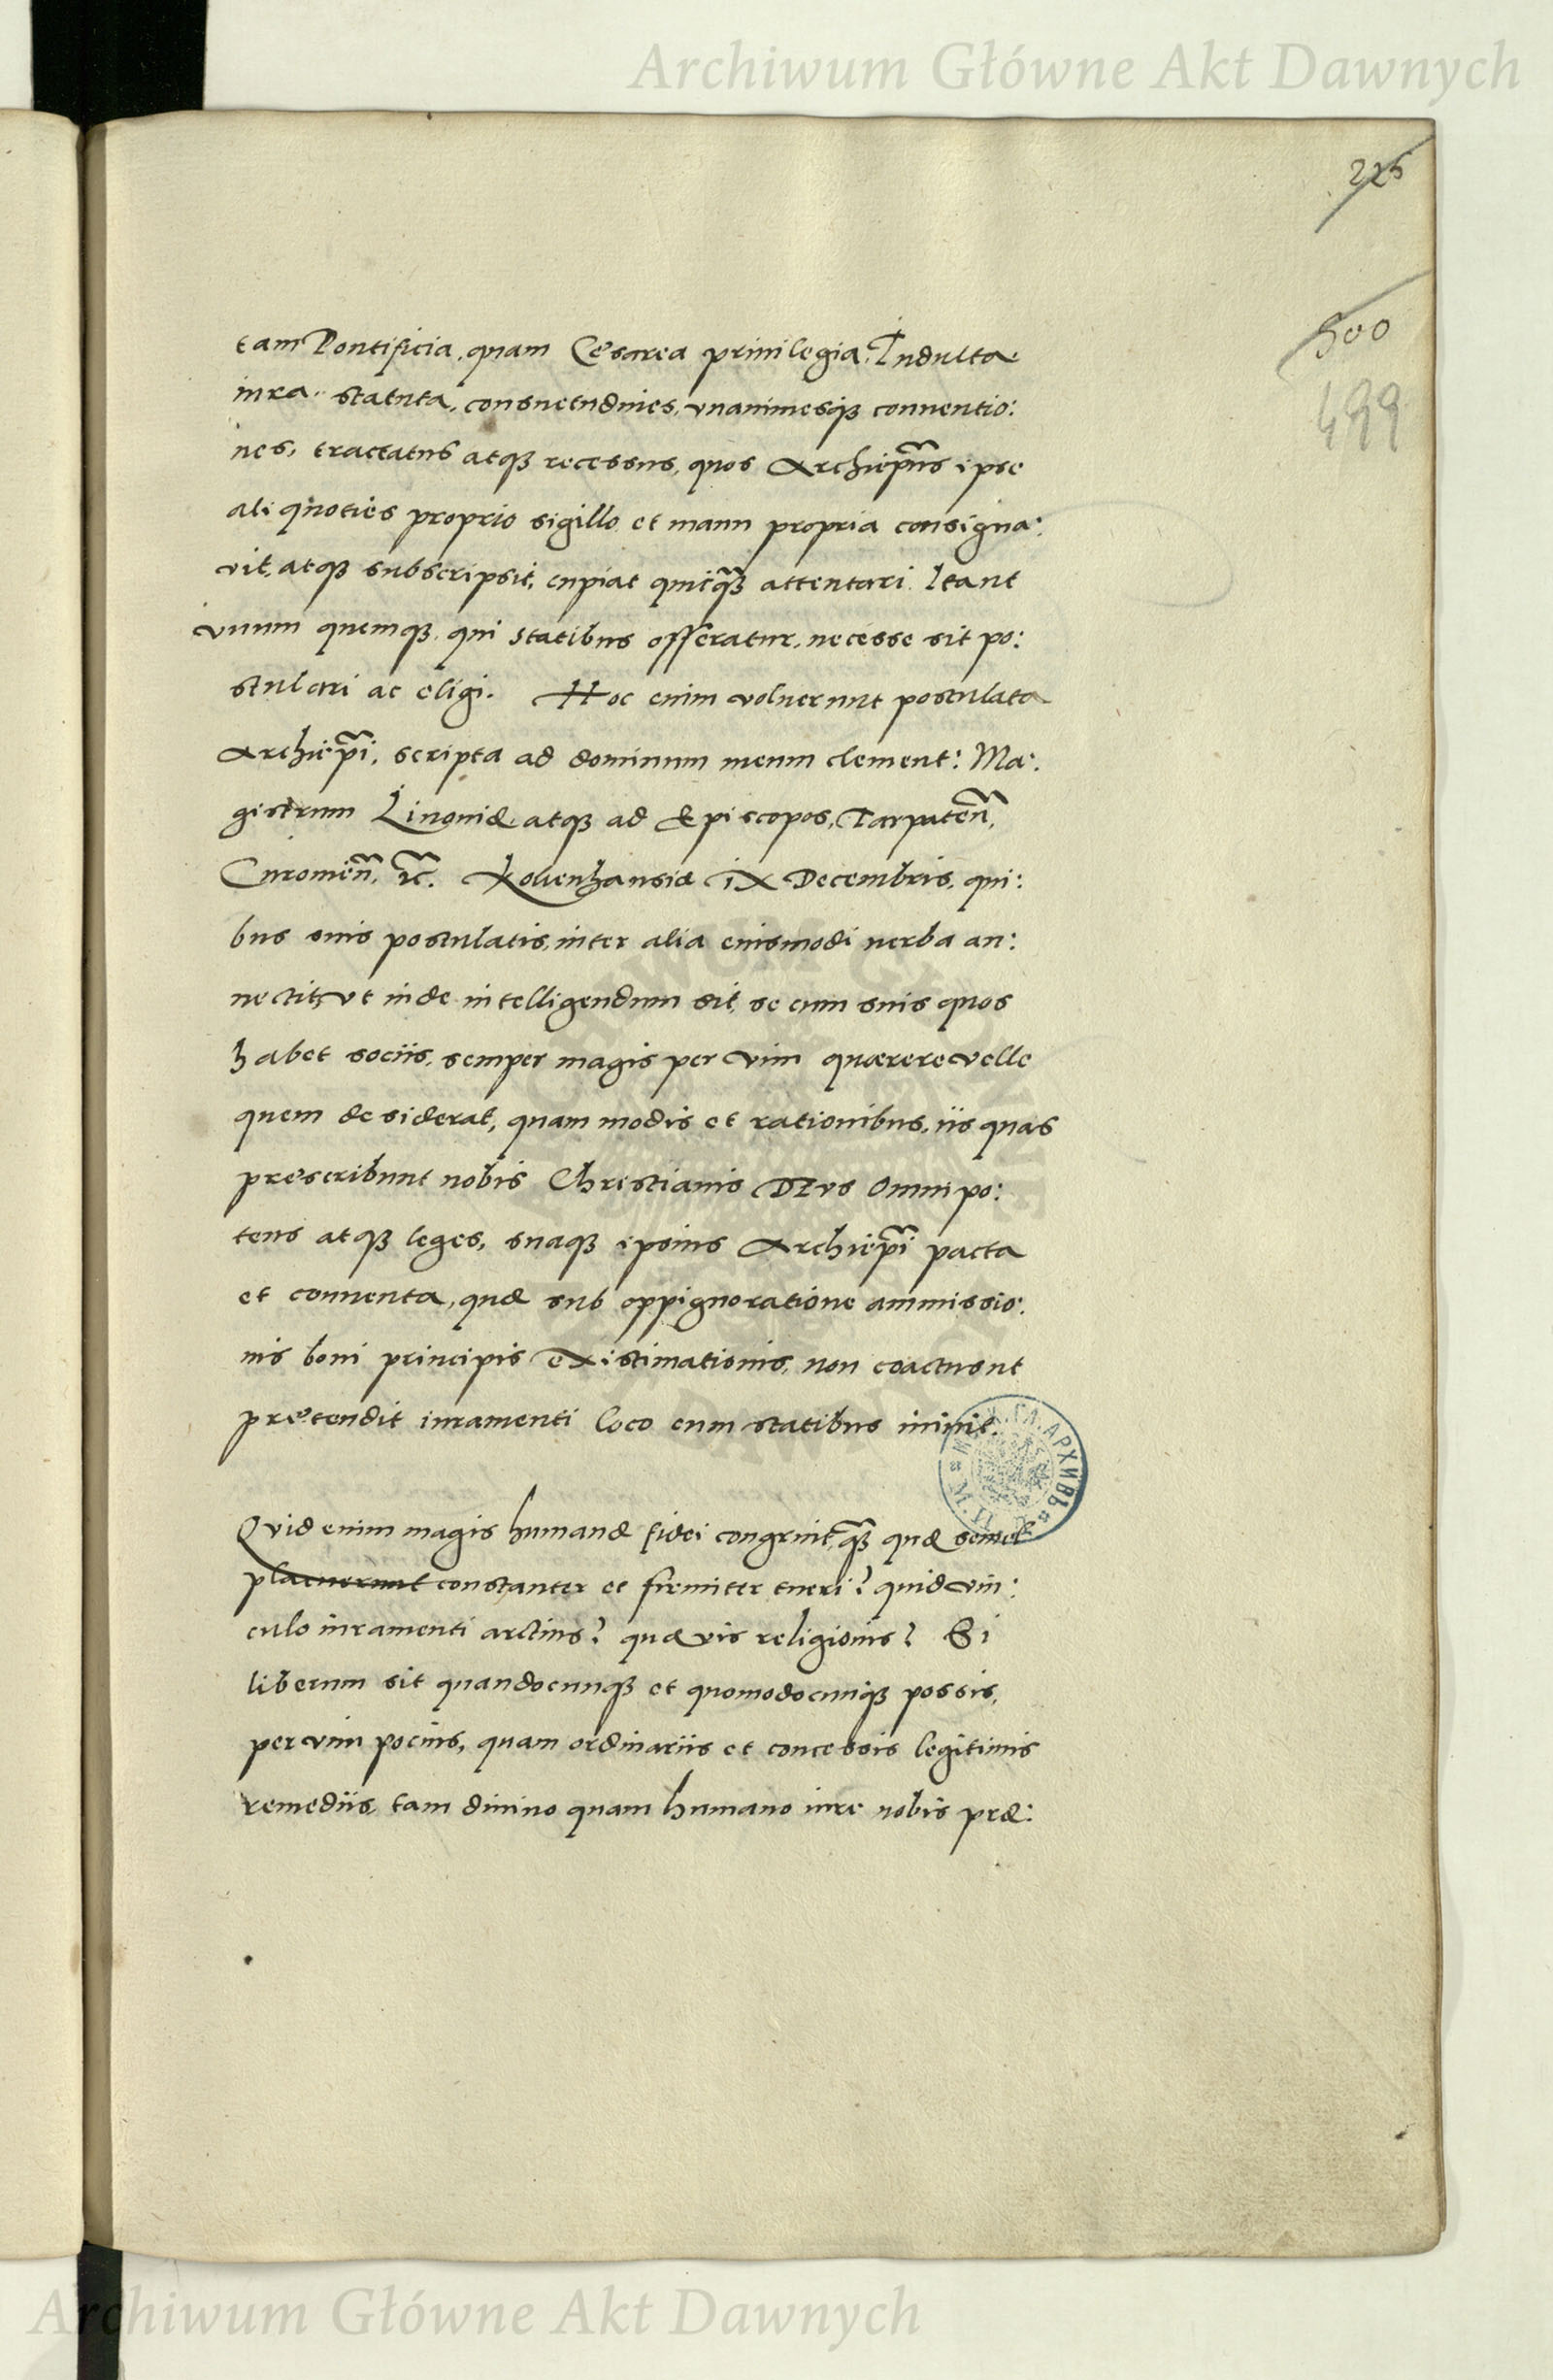 Archiwum Główne Akt Dawnych
225
500
499
tam Pontificia, quam Cęsarea priuilegia, Indulta
iura, statuta, consuetudines, vnanimesqȝ conuentio:
nes, tractatus atqȝ recessus, quos Archiep̃us ipse
aliquoties proprio sigillo et manu propria consigna:
vit, atqȝ subscripsit, cupiat quicq̃ȝ attentari. Ita ut
vnum quemqȝ, qui statibus offeratur, necesse sit po:
stulari ac eligi. Hoc enim voluerunt postulata
Archiep̃i, scripta ad dominum meum clement: Ma:
gistrum Liuoniæ atqȝ ad Episcopos, Tarpateñ,
Curonieñ, ꝛc̃. Kokenhausiæ IX Decembris, qui:
bus suis postulatis, inter alia eiusmodi uerba an:
nectit, vt inde intelligendum sit, se cum suis quos
habet sociis, semper magis per vim quærere velle
quem desiderat, quam modis et rationibus, iis quas
pręscribunt nobis Christianis DEVS Omnipo:
tens atqȝ leges, suaqȝ ipsius Archiep̃i pacta
et conuenta, quæ sub oppignoratione ammissio:
nis boni principis existimationis, non coactus ut
prętendit iuramenti loco cum statibus iniuit.
Quid enim magis humanæ fidei congruit, q̃ȝ quæ semel
placuerunt constanter et firmiter tueri? quid vin:
culo iuramenti arctius? quæ vis religionis? Si
liberum sit quandocunqȝ et quomodocunqȝ possis,
per vim pocius, quam ordinariis et concessis legitimis
remediis tam diuino quam humano iure nobis præ:
ГЛ. АРХИВЪ
Archiwum Główne Akt Dawnych